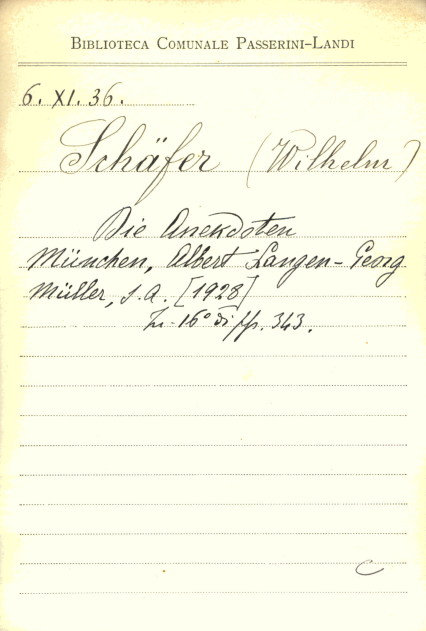 BIBLIOTECA COMUNALE PASSERINI-LANDI
6. XI. 36.
Schäfer (Wilhelm)
Die Anekdoten
München, Albert Langen - Georg
Müller, s. a. [1928]
In-16° di pp. 343.
C